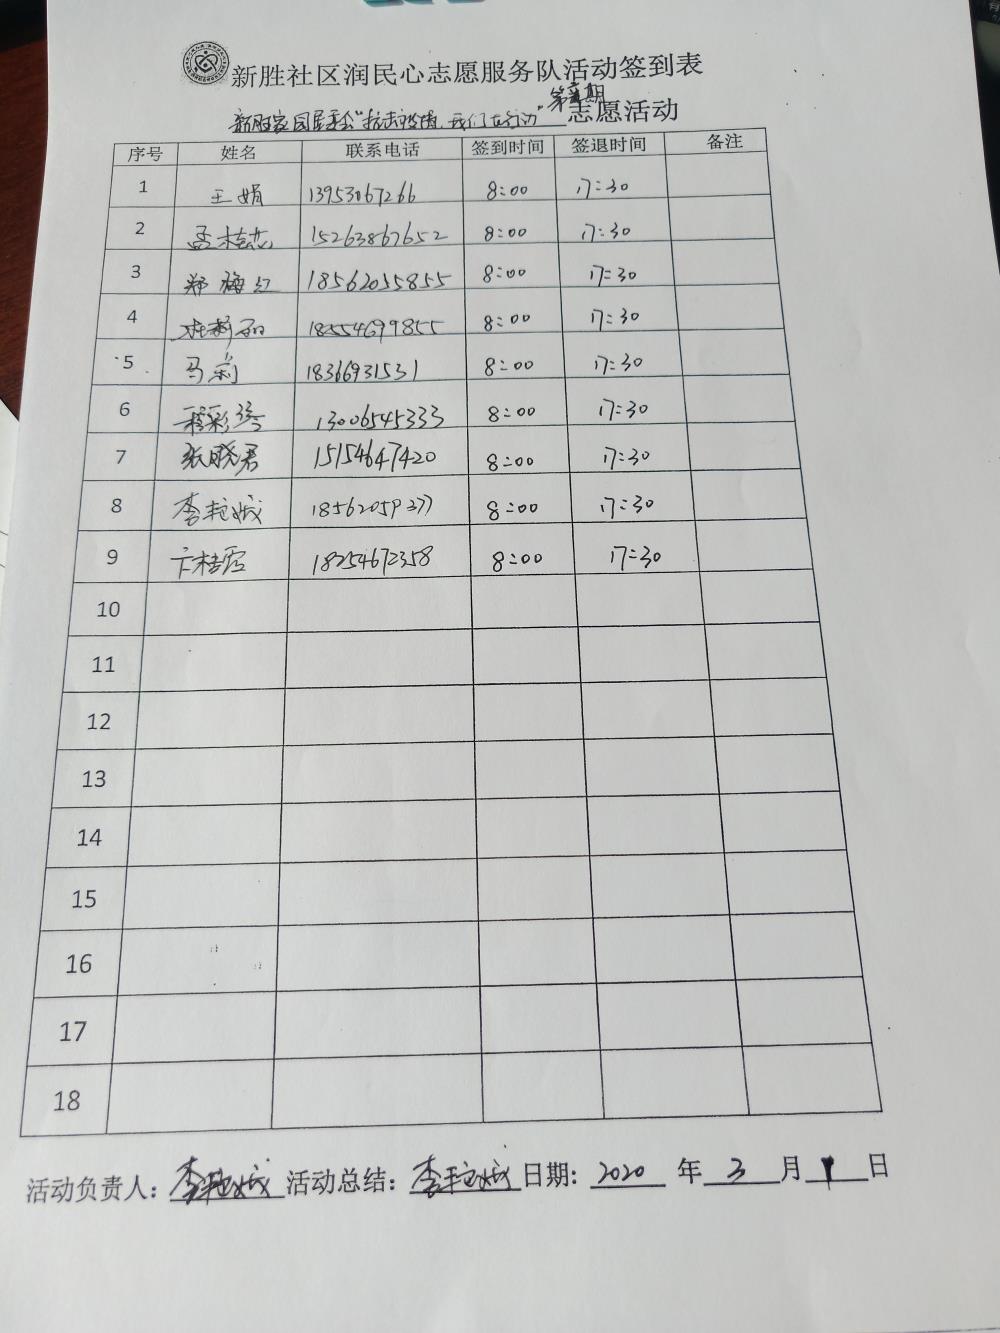 新胜社区润民心志愿服务队活动签到表
新胜家园居委会"抗击疫情,我们在行动" 第 期 志愿活动
序号 姓名 联系电话 签到时间 签退时间 备注
1 王娟 13953067266 8:00 17:30
2 孟桂芯 15263867652 8:00 17:30
3 郑梅红 18562055855 8:00 17:30
4 18554699855 8:00 17:30
5 马莉 18366931531 8:00 17:30
6 程彩琴 13006545333 8:00 17:30
7 张晓君 15154647420 8:00 17:30
8 李艳娥 18562059377 8:00 17:30
9 卞桂霞 18254672358 8:00 17:30
10
11
12
13
14
15
16
17
18
活动负责人: 李艳娥 活动总结: 李艳娥 日期: 2020 年 3 月 1 日